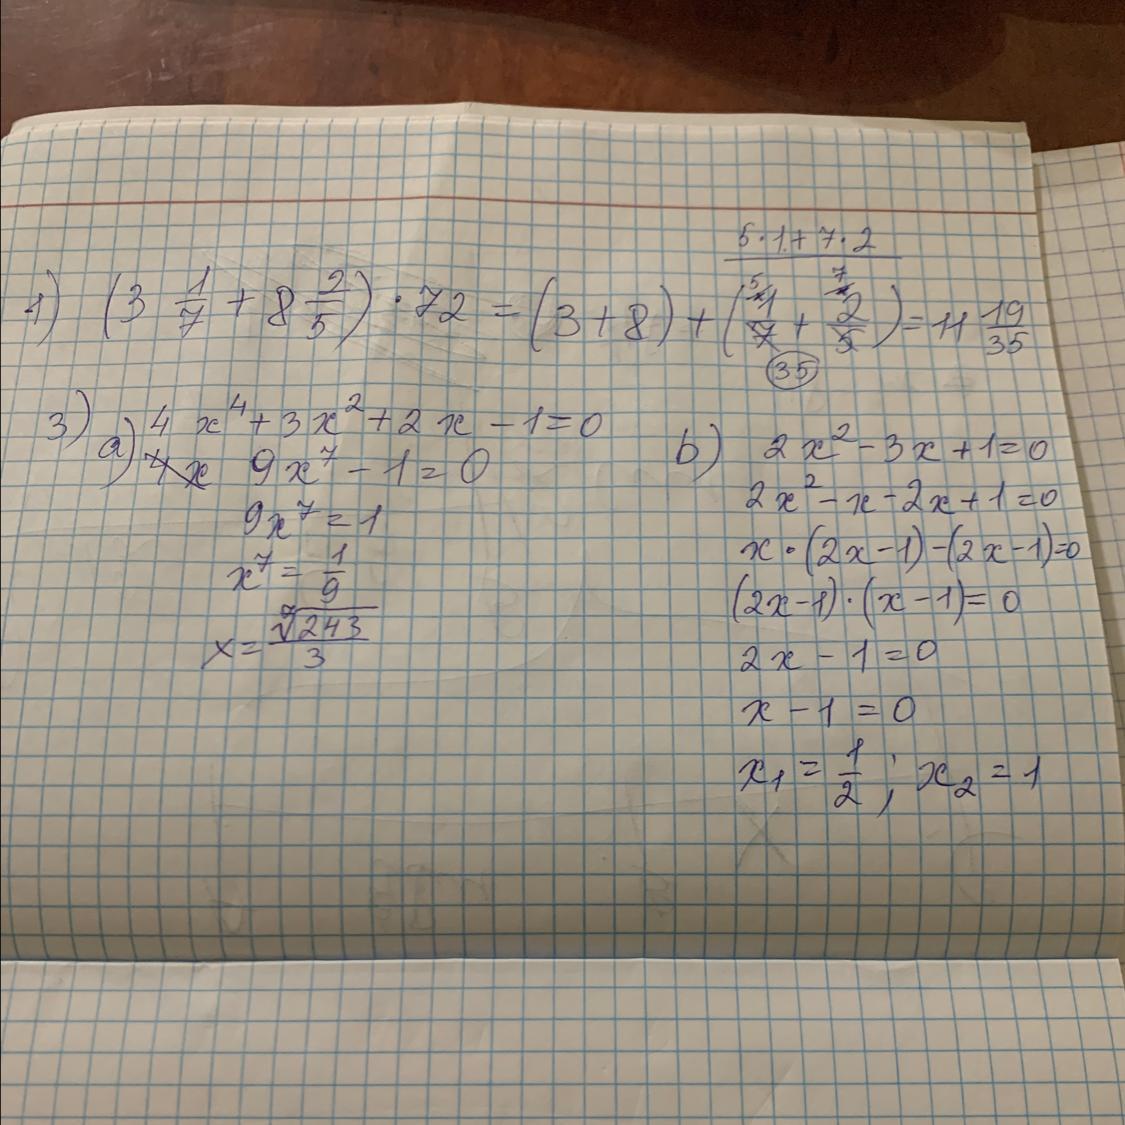 1) (3 1/7 + 8 2/5) · 72 = (3+8) + (1/7 + 2/5) = 11 19/35
5·1+7·2
5 7
35
3) a) 4x⁴+3x²+2x-1=0
4x 9x⁷-1=0
9x⁷=1
x⁷=1/9
x=⁷√243/3
b) 2x²-3x+1=0
2x²-x-2x+1=0
x·(2x-1)-(2x-1)=0
(2x-1)·(x-1)=0
2x-1=0
x-1=0
x₁=1/2; x₂=1